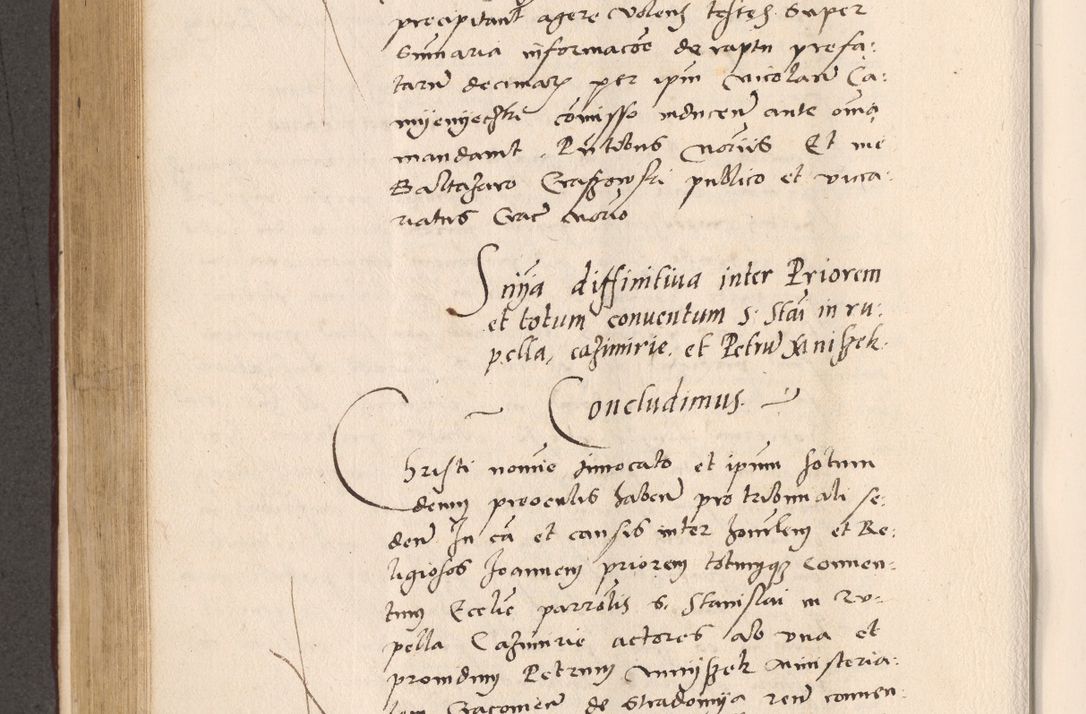 precipitant agere volens testes super
Summaria informacõe de raptu prefa:
tarũ decimarʒ per ipm̃ Nicolaũ Ca:
myenyeczki cõmisso inducen̄ ante om̃a
mandavit. Pñtibus Noriis Et me
Baltasaro publico et vica:
riatus Crac̃ Norio
Snÿa diffinitiua inter Priorem
et totum conuentum s. Stãi in ru:
pella, cazimirie. et Petrũ Janiszek.
Concludimus.
Christi nomie Inuocato et ipum solum
deum preoculis haben̄ pro tribunali se:
den̄ In cã et causis inter honƀlem et Re:
ligiosos Joannem priorem totumqʒ Conuen:
tum Ecclie parrõlis s. Stanislai in Ru:
pella Cazimirie actores ab una et
prouidum Petrum Janiszek ministeria:
lem Cracouien̄ de Stradomÿa reũ conuen: